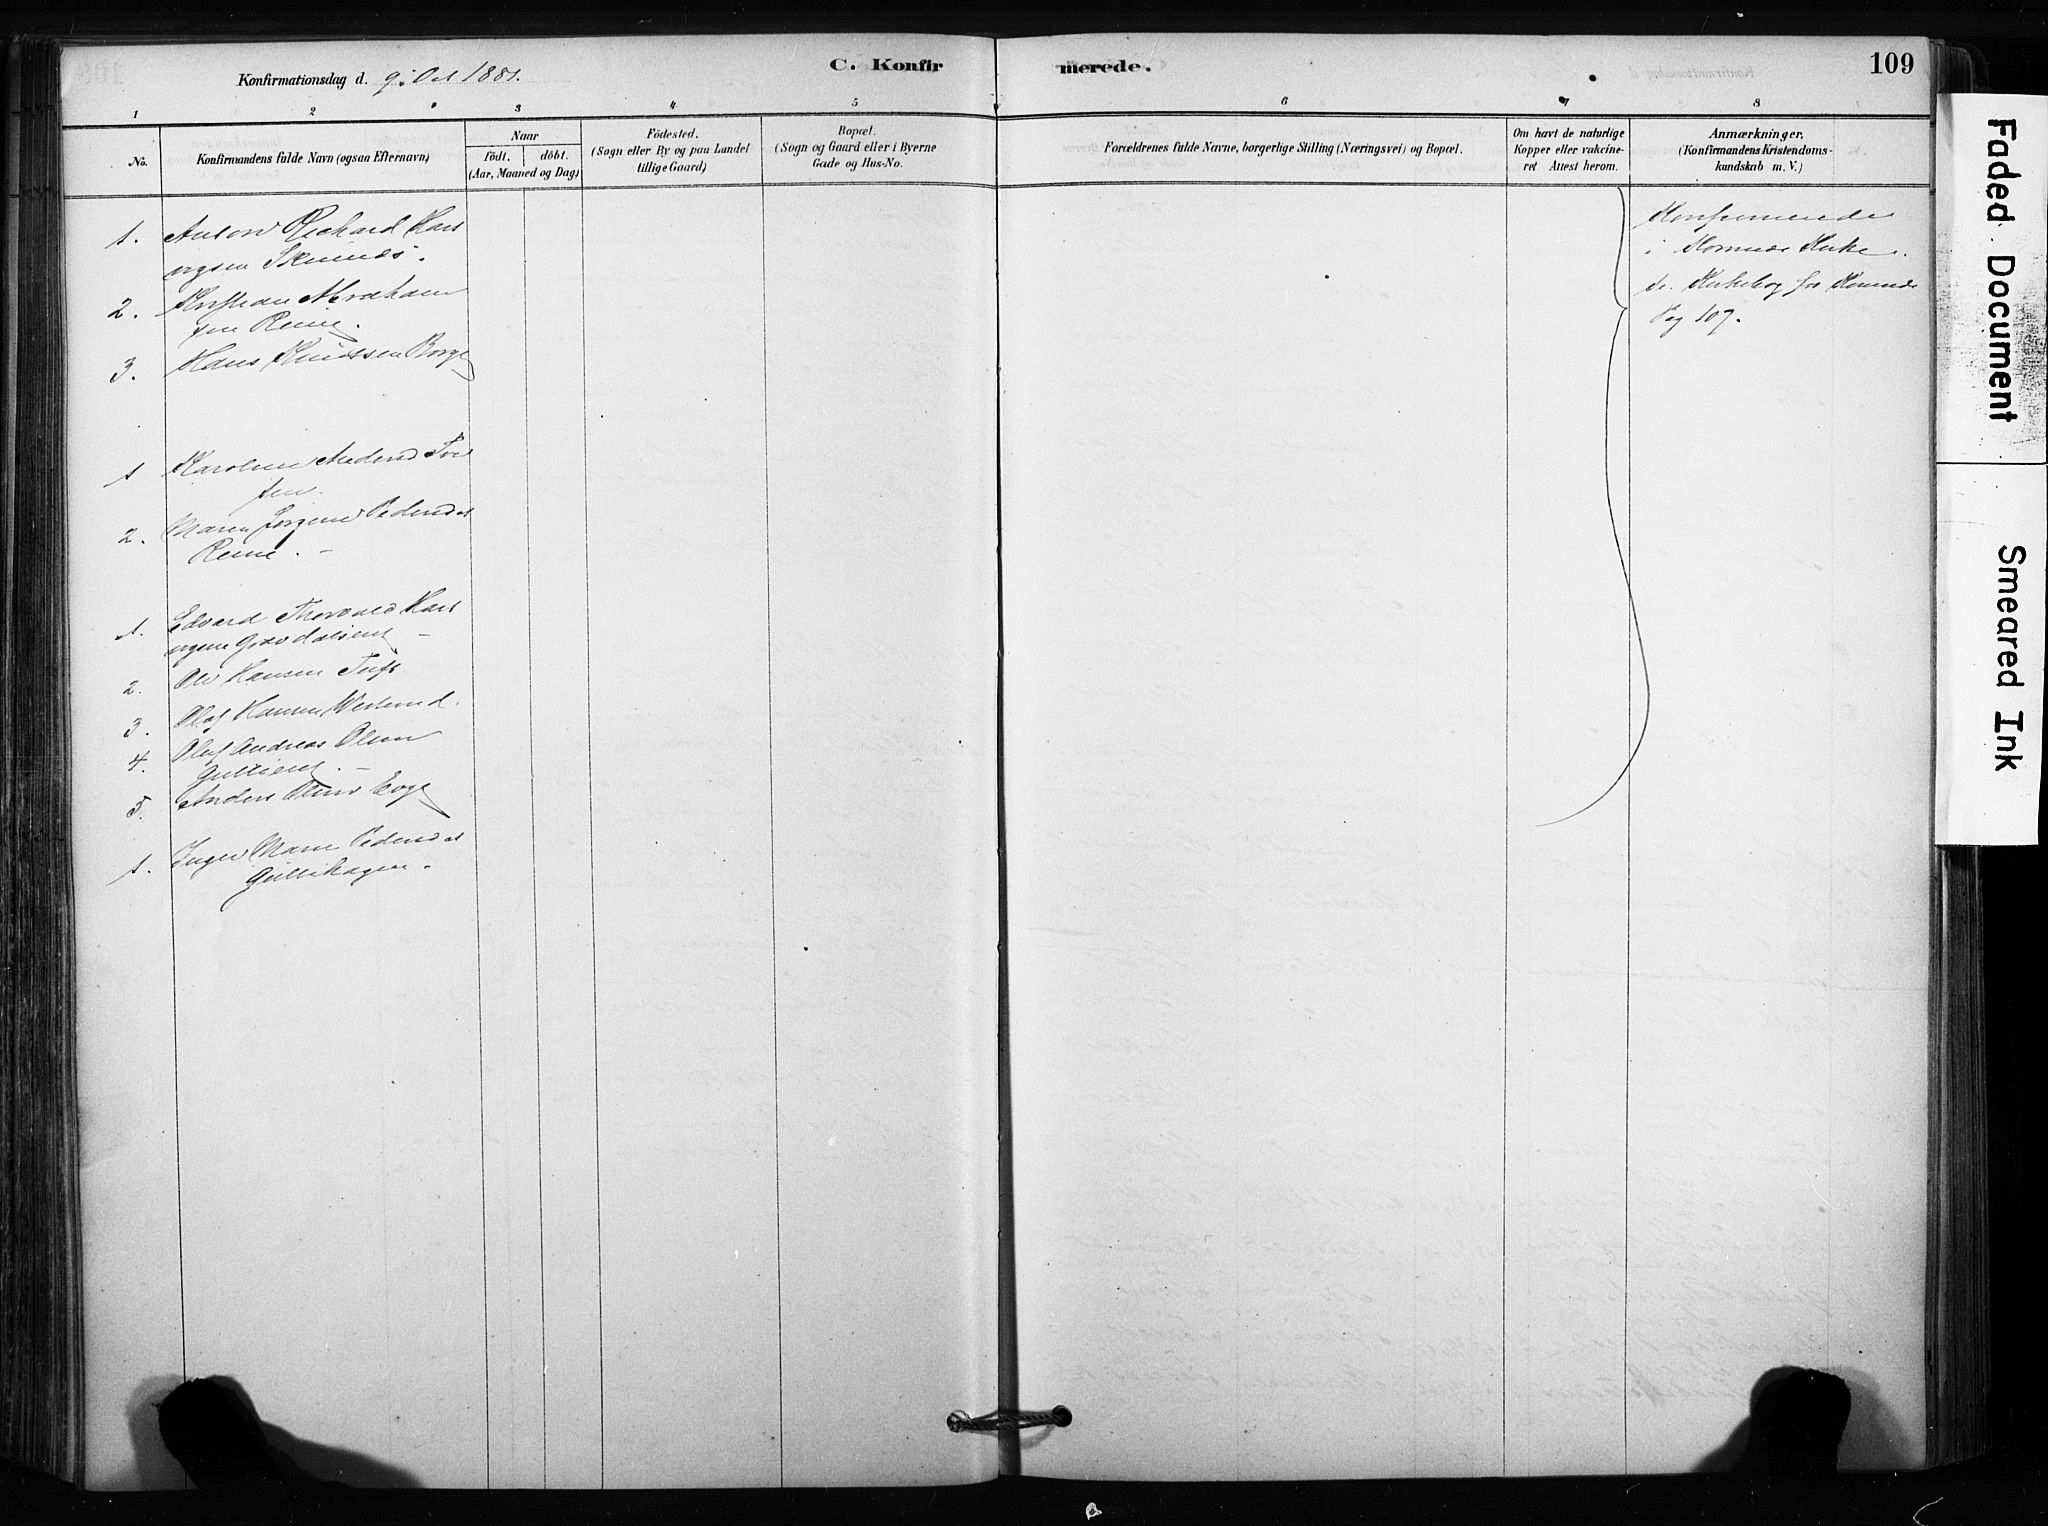 Konfirmationsdag d. 9. Oct 1881.
C. Konfirmerede.
109
1 2 3 4 5 6 7 8
No.
Konfirmandens fulde Navn (ogsaa Efternavn)
Naar
födt. döbt.
(Aar, Maaned og Dag)
Födested.
(Sogn eller By og paa Landet
tillige Gaard)
Bopæl.
(Sogn og Gaard eller i Byerne
Gade og Hus-No.
Forældrenes fulde Navne, borgerlige Stilling (Næringsvei) og Bopæl.
Om havt de naturlige
Kopper eller vakcine-
ret Attest herom.
Anmærkninger.
(Konfirmandens Kristendoms-
kundskab m. V.)
1. Anton Richard Hart
vigsen
2. Kristian Abraham
sen Reine.
3. Hans Knudssen Borge
1 Karoline
2. Maren Jørgine Pedersdat
Reine. -
1. Edvard Thorvald Hart
vigsen
2. Ole Hansen Tuft
3. Olaf Hansen
4. Olaf Andreas Olsen
5. Anders Olsen
1. Inger Marie Pedersdat
Gullikagen.
Konfirmerede
i Komnæs Kirke.
se Kirkebog for Komnæs
Pag 107.
Faded Document
Smeared Ink